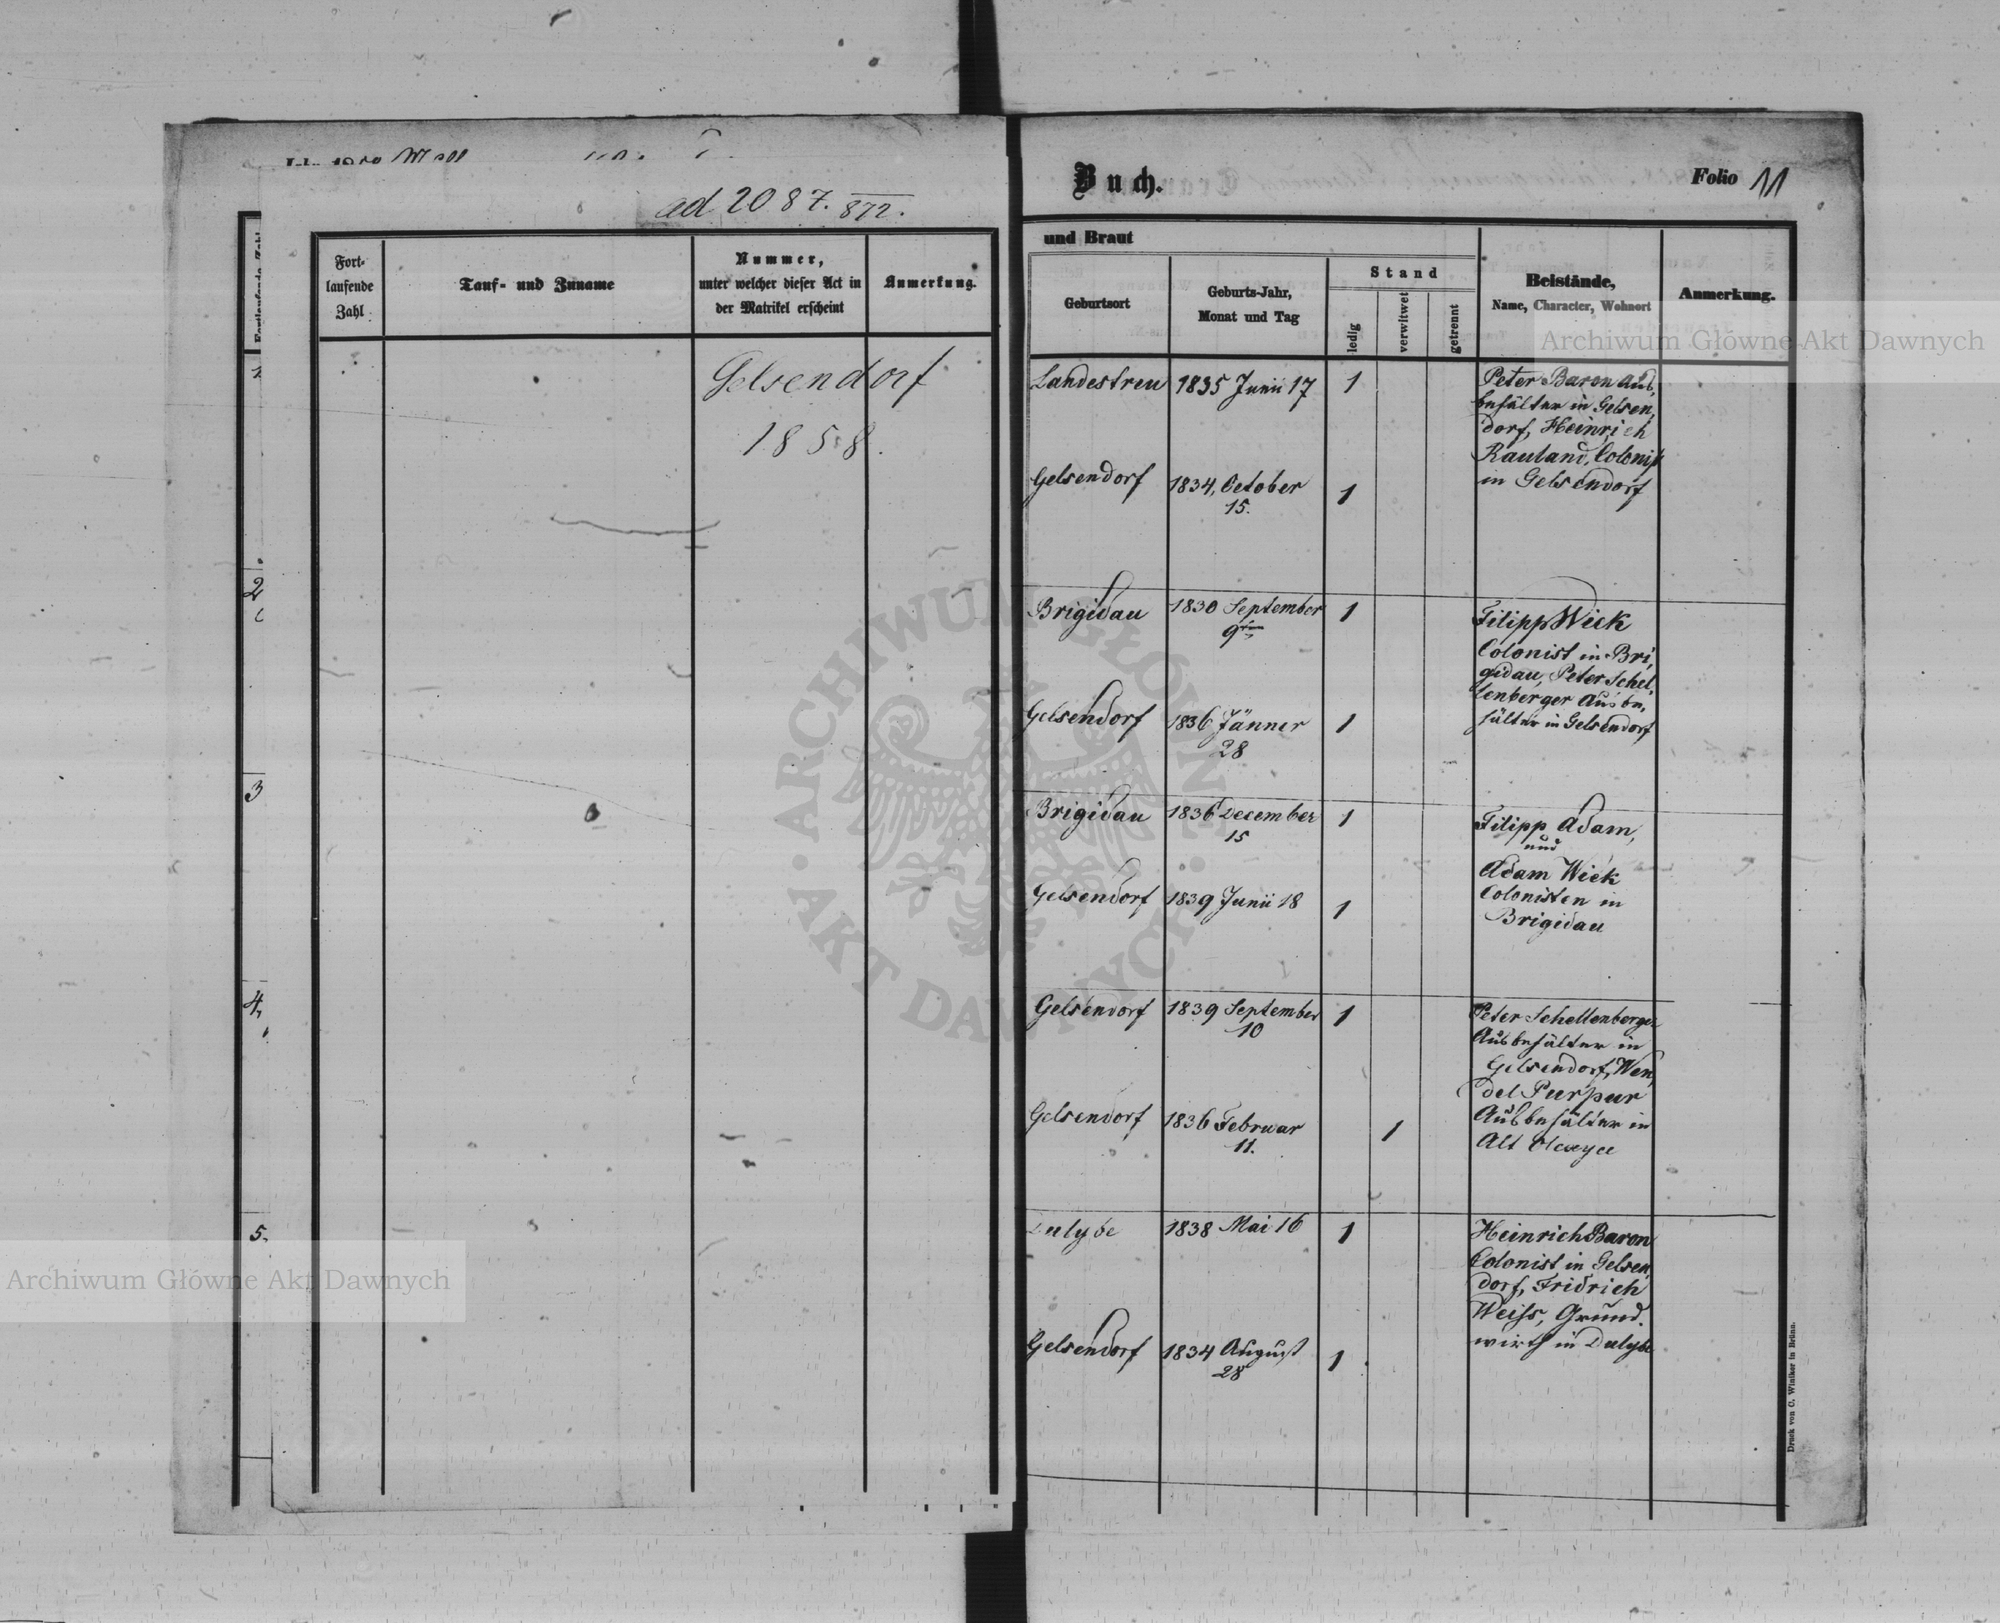 ad 2087. 872.
Fort-
laufende
Zahl
Tauf- und Zuname
Nummer,
unter welcher dieser Act in
der Matrikel erscheint
Anmerkung.
Gelsendorf
1858.
2
3
4,
5.
Buch.
Folio 11
und Braut
Geburtsort
Geburts-Jahr,
Monat und Tag
Stand
ledig
verwitwet
getrennt
Beistände,
Name, Character, Wohnort
Anmerkung.
Landestreu 1835 Junii 17 1
Peter Baron Aus,
behälter in Gelsen,
dorf, Heinrich
Rauland, Colonist
in Gelsendorf
Gelsendorf 1834, October
15. 1
Brigidau 1830 September
9ten 1
Filipp Wick
Colonist in Bri,
gidau, Peter Schel,
lenberger Ausbe,
hälter in Gelsendorf
Gelsendorf 1836 Jänner
28 1
Brigidau 1836 December
15 1
Filipp Adam,
und
Adam Wick
Colonisten in
Brigidau
Gelsendorf 1839 Junii 18 1
Gelsendorf 1839 September
10 1
Peter Schellenberger
Ausbehälter in
Gelsendorf, Wen,
del Purpur
Ausbehälter in
Alt
Gelsendorf 1836 Februar
11. 1
Dulybe 1838 Mai 16 1
Heinrich Baron
Colonist in Gelsen,
dorf, Fridrich
Weiss, Grund.
wirth in Dulybe
Gelsendorf 1834 August
28 1
Druck von C. Winiker in Brünn.
Archiwum Główne Akt Dawnych
Archiwum Główne Akt Dawnych
ARCHIWUM GŁÓWNE · AKT DAWNYCH ·